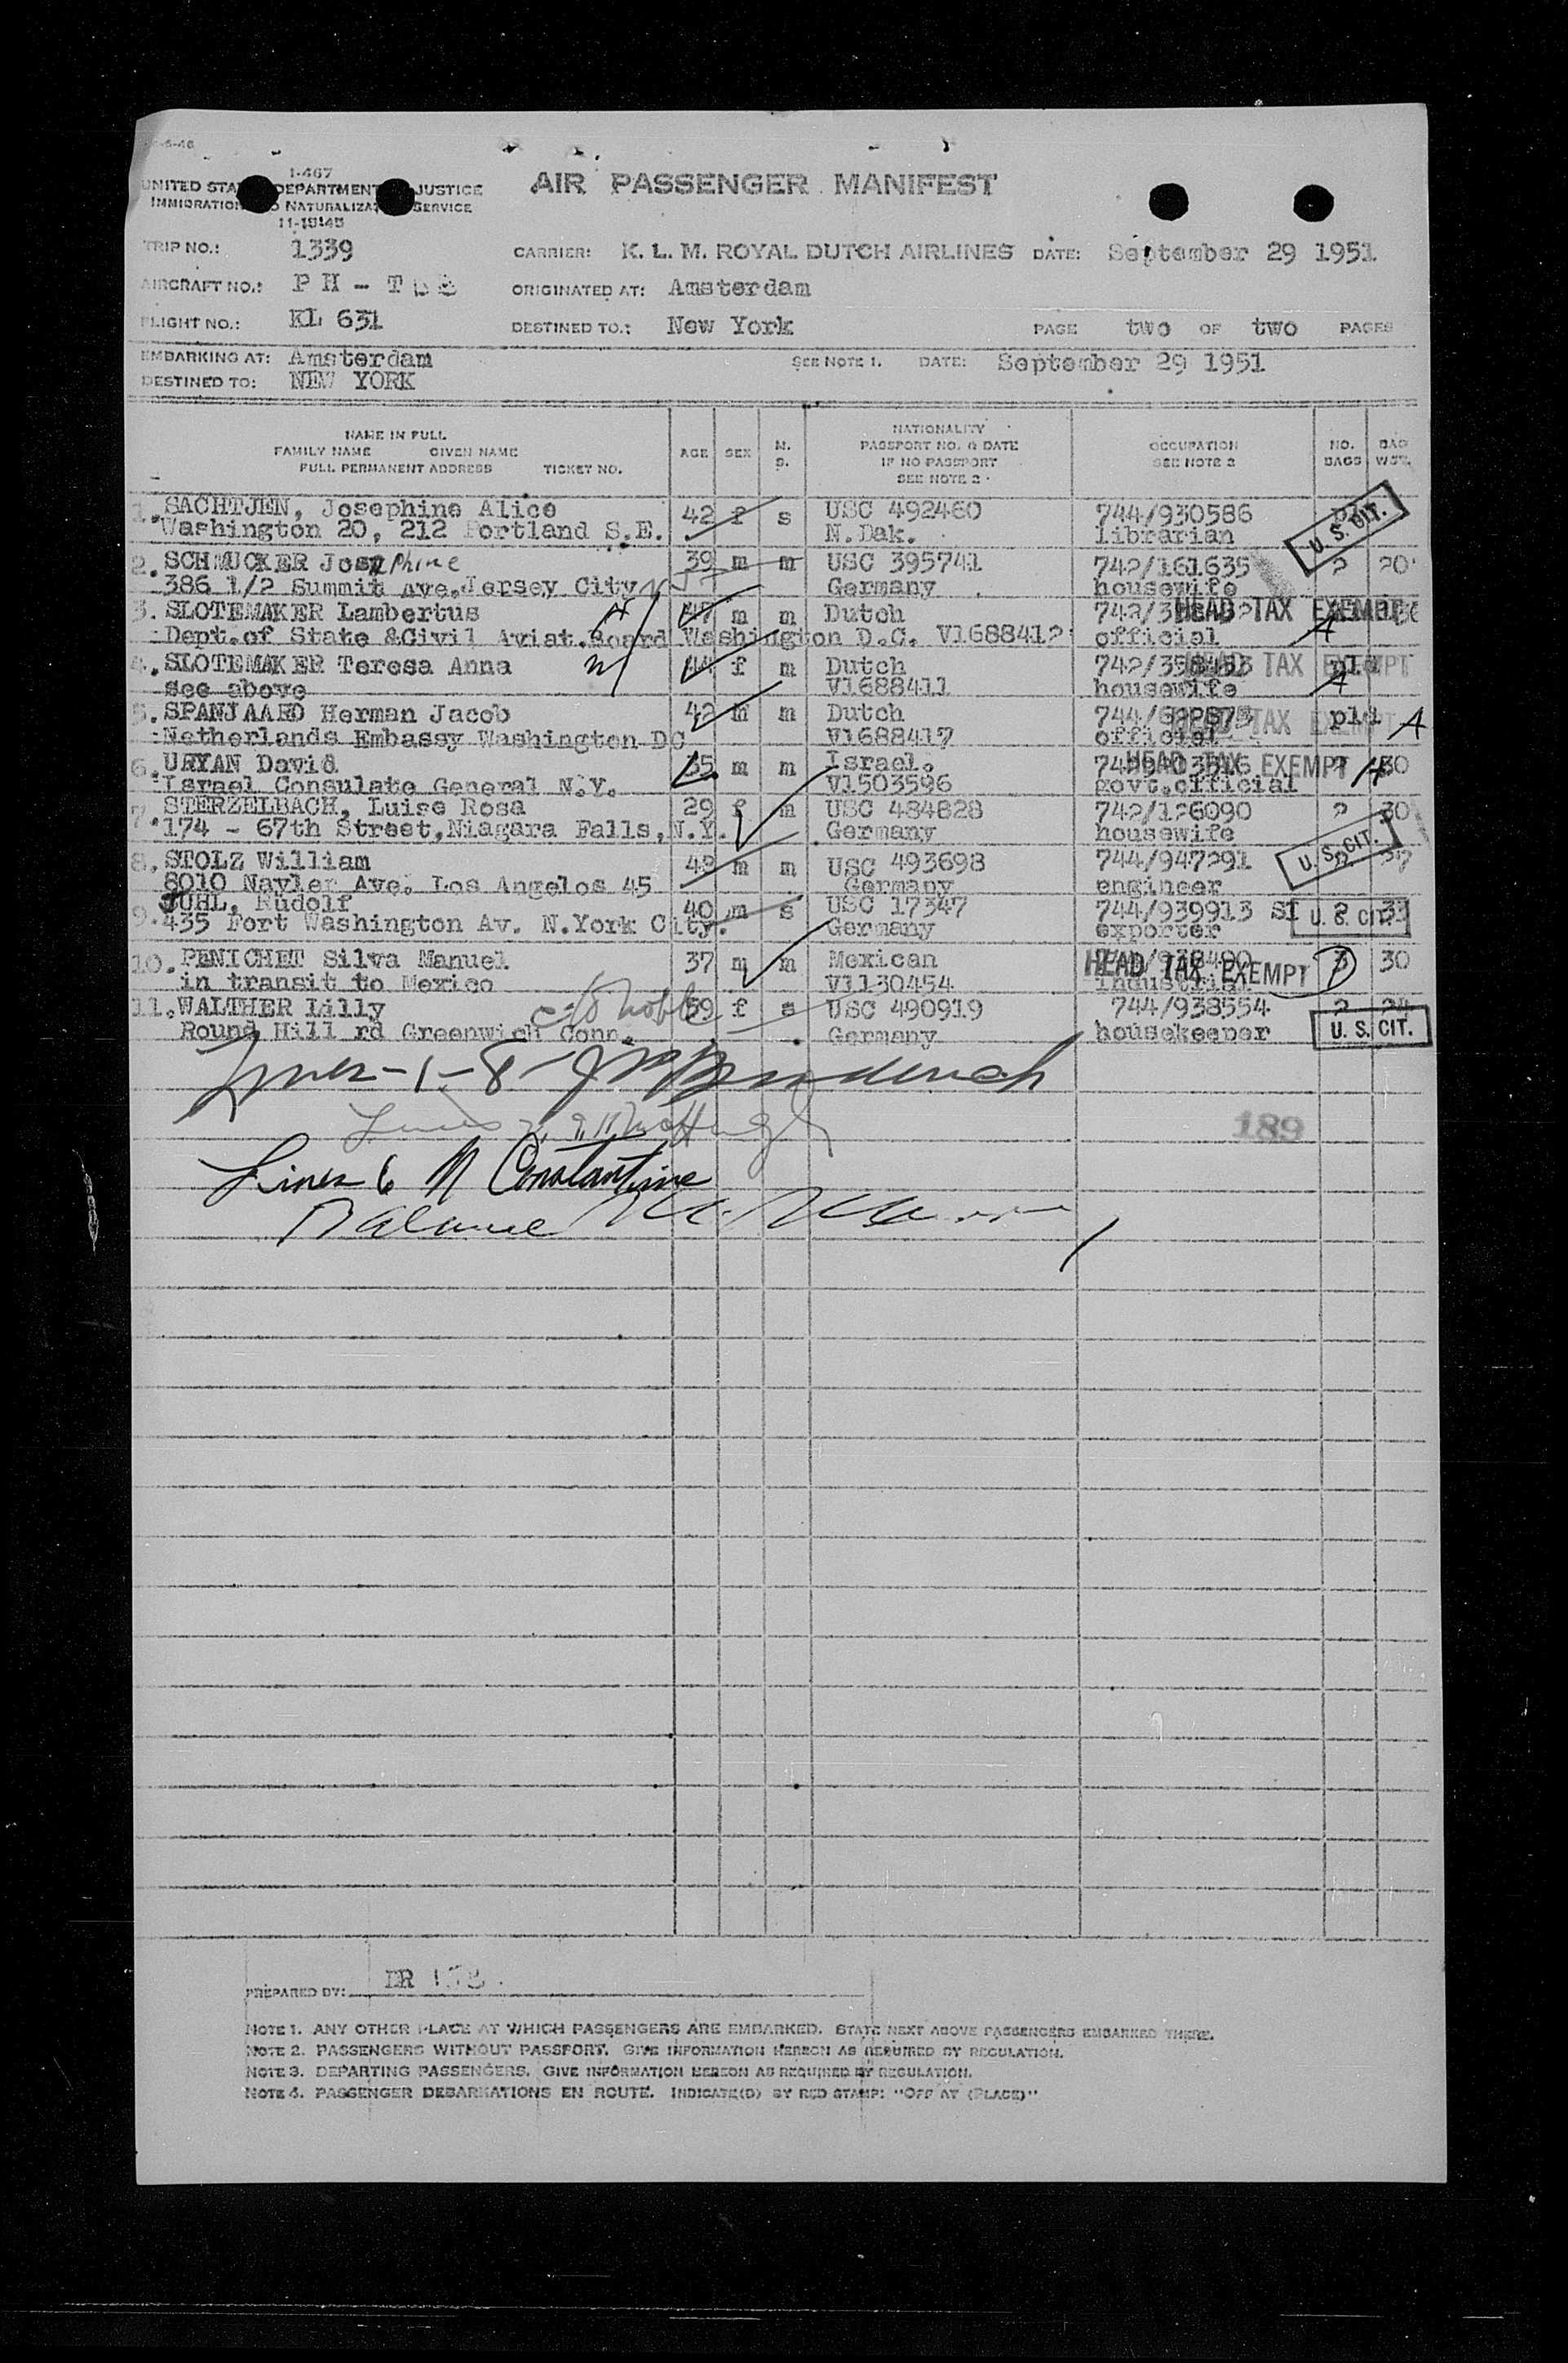 I-467
UNITED STATES DEPARTMENT OF JUSTICE
IMMIGRATION AND NATURALIZATION SERVICE
11-15-45
AIR PASSENGER MANIFEST
TRIP NO.: 1339 CARRIER: K. L. M. ROYAL DUTCH AIRLINES DATE: September 29 1951
AIRCRAFT NO.: P H - T ORIGINATED AT: Amsterdam
FLIGHT NO.: KL 631 DESTINED TO: New York PAGE two OF two PAGES
EMBARKING AT: Amsterdam SEE NOTE 1. DATE: September 29 1951
DESTINED TO: NEW YORK
NAME IN FULL
FAMILY NAME GIVEN NAME
FULL PERMANENT ADDRESS TICKET NO.
AGE SEX M. S.
NATIONALITY
PASSPORT NO. & DATE
IF NO PASSPORT
SEE NOTE 2
OCCUPATION
SEE NOTE 2
NO. BAGS
BAG WGT.
1. SACHTJEN, Josephine Alice 42 f s USC 492460 744/930586
Washington 20, 212 Portland S.E. N.Dak. librarian
U. S. CIT.
2. SCHMUCKER Josephine 39 m m USC 395741 742/161635 2 20
386 1/2 Summit Ave. Jersey City N J Germany housewife
3. SLOTEMAKER Lambertus 47 m m Dutch HEAD TAX EXEMPT
Dept.of State &Civil Aviat.Board Washington D.C. V1688412 official A
4. SLOTEMAKER Teresa Anna 44 f m Dutch HEAD TAX EXEMPT
see above V1688411 housewife A
5. SPANJAARD Herman Jacob 42 m m Dutch HEAD TAX EXEMPT pld A
Netherlands Embassy Washington DC V1688417 official
6. URYAN David 35 m m Israel. HEAD TAX EXEMPT A 30
Israel Consulate General N.Y. V1503596 govt.official
7. STERZELBACH, Luise Rosa 29 f m USC 484828 742/126090 2 30
174 - 67th Street,Niagara Falls, N.Y. Germany housewife
8. STOLZ William 49 m m USC 493698 744/947291
8010 Nayler Ave. Los Angelos 45 Germany engineer
U. S. CIT.
9. JUHL, Rudolf 40 m s USC 17347 744/939913 SI 2
435 Fort Washington Av. N.York City. Germany exporter
U. S. CIT.
10. PENICHET Silva Manuel 37 m m Mexican HEAD TAX EXEMPT 3 30
in transit to Mexico V1130454
11. WALTHER Lilly 59 f s USC 490919 744/938554 2 24
Round Hill rd Greenwich Conn. Germany housekeeper
U. S. CIT.
c/o Noble
Lines - 1 - 8 -
189
Lines 6 N Constantine
Balance
PREPARED BY: DR
NOTE 1. ANY OTHER PLACE AT WHICH PASSENGERS ARE EMBARKED. STATE NEXT ABOVE PASSENGERS EMBARKED THERE.
NOTE 2. PASSENGERS WITHOUT PASSPORT. GIVE INFORMATION HEREON AS REQUIRED BY REGULATION.
NOTE 3. DEPARTING PASSENGERS. GIVE INFORMATION HEREON AS REQUIRED BY REGULATION.
NOTE 4. PASSENGER DEBARKATIONS EN ROUTE. INDICATE(D) BY RED STAMP: "OFF AT (PLACE)"